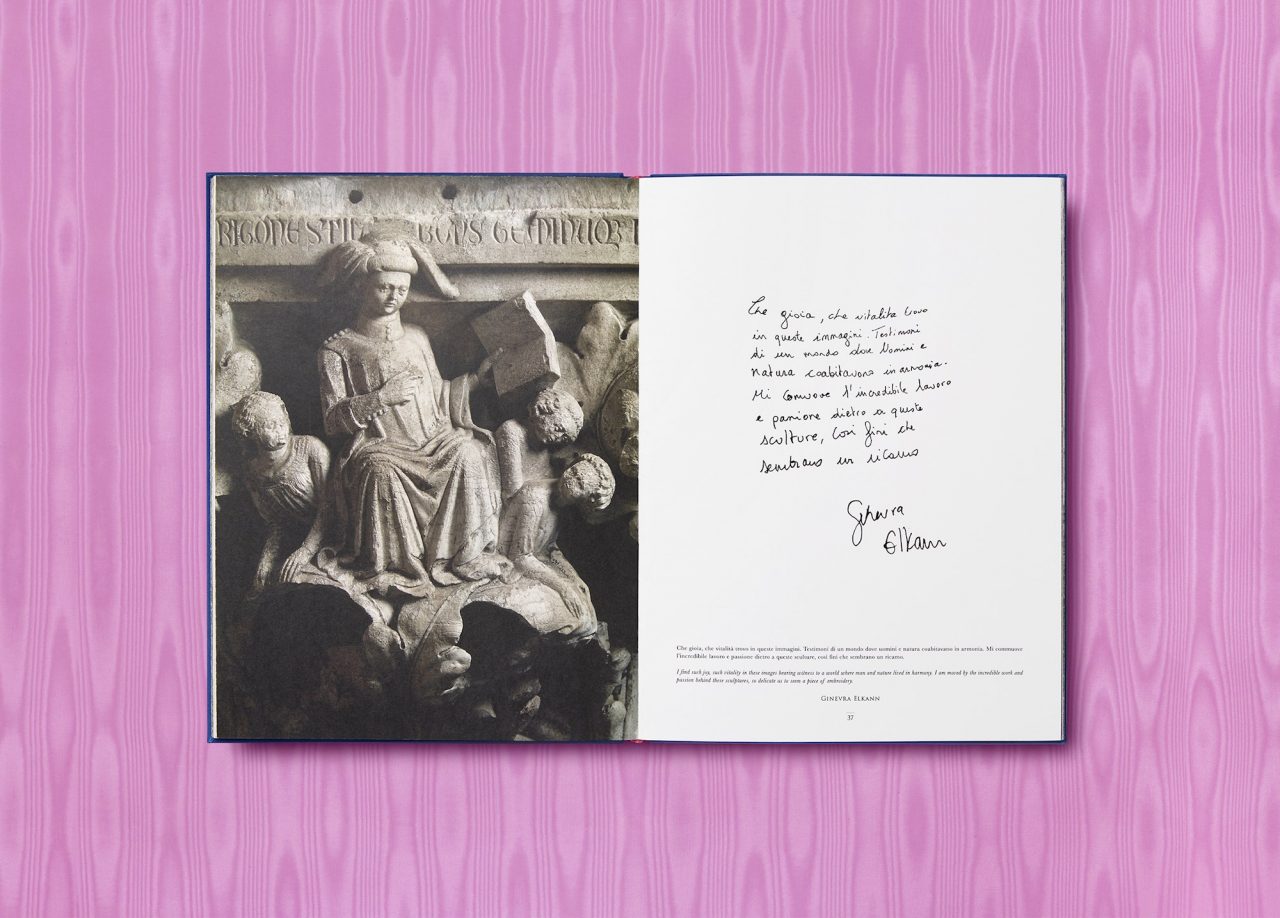 RIGONESTI BONS GEMINVOR
Che gioia, che vitalita trovo
in queste immagini. Testimoni
di un mondo dove Uomini e
natura coabitavano in armonia.
Mi commuove l'incredibile lavoro
e passione dietro a queste
sculture, così fini che
sembrano un ricamo
Ginevra
Elkann
Che gioia, che vitalità trovo in queste immagini. Testimoni di un mondo dove uomini e natura coabitavano in armonia. Mi commuove
l'incredibile lavoro e passione dietro a queste sculture, così fini che sembrano un ricamo.
I find such joy, such vitality in these images bearing witness to a world where man and nature lived in harmony. I am moved by the incredible work and
passion behind these sculptures, so delicate as to seem a piece of embroidery.
Ginevra Elkann
37